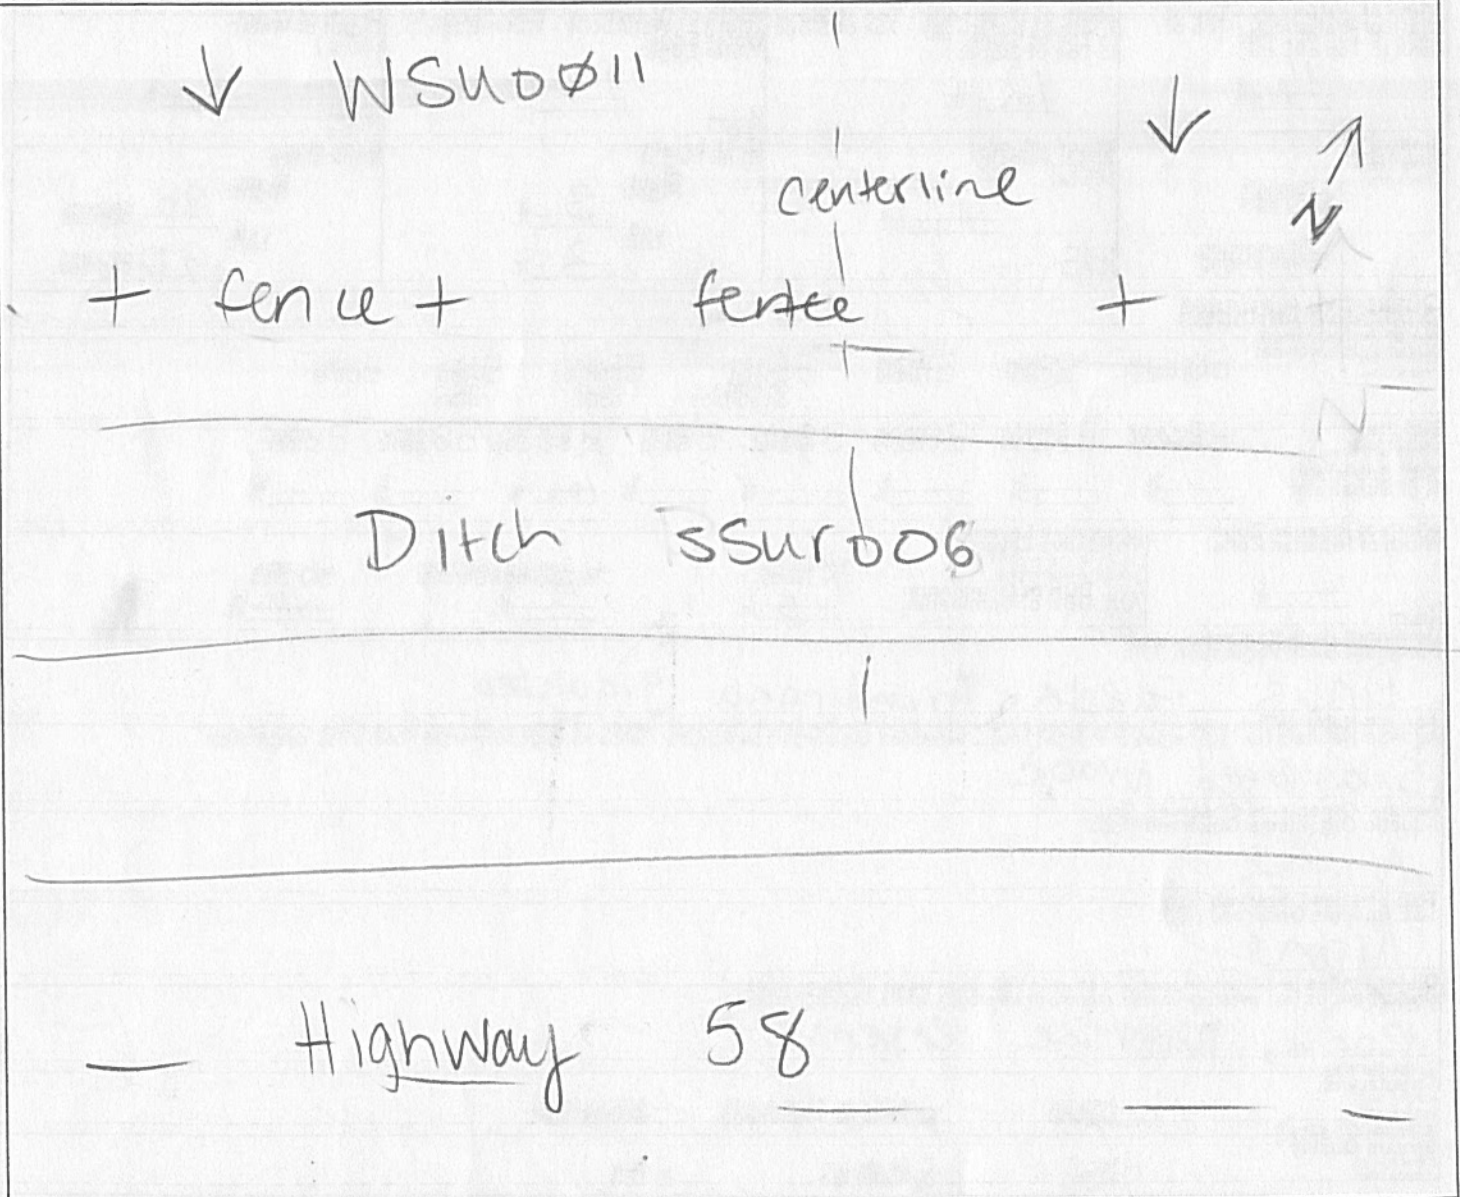 WSU0011
centerline
N
fence fence
Ditch SSUR006
Highway 58